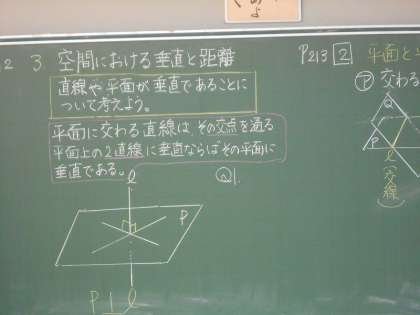 3 空間における垂直と距離
直線や平面が垂直であることに
ついて考えよう。
平面に交わる直線は、その交点を通る
平面上の2直線に垂直ならばその平面に
垂直である。
Q1.
ℓ
P
P
ℓ
P213 2 平面と
ア 交わる
Q
P
ℓ
(交線)